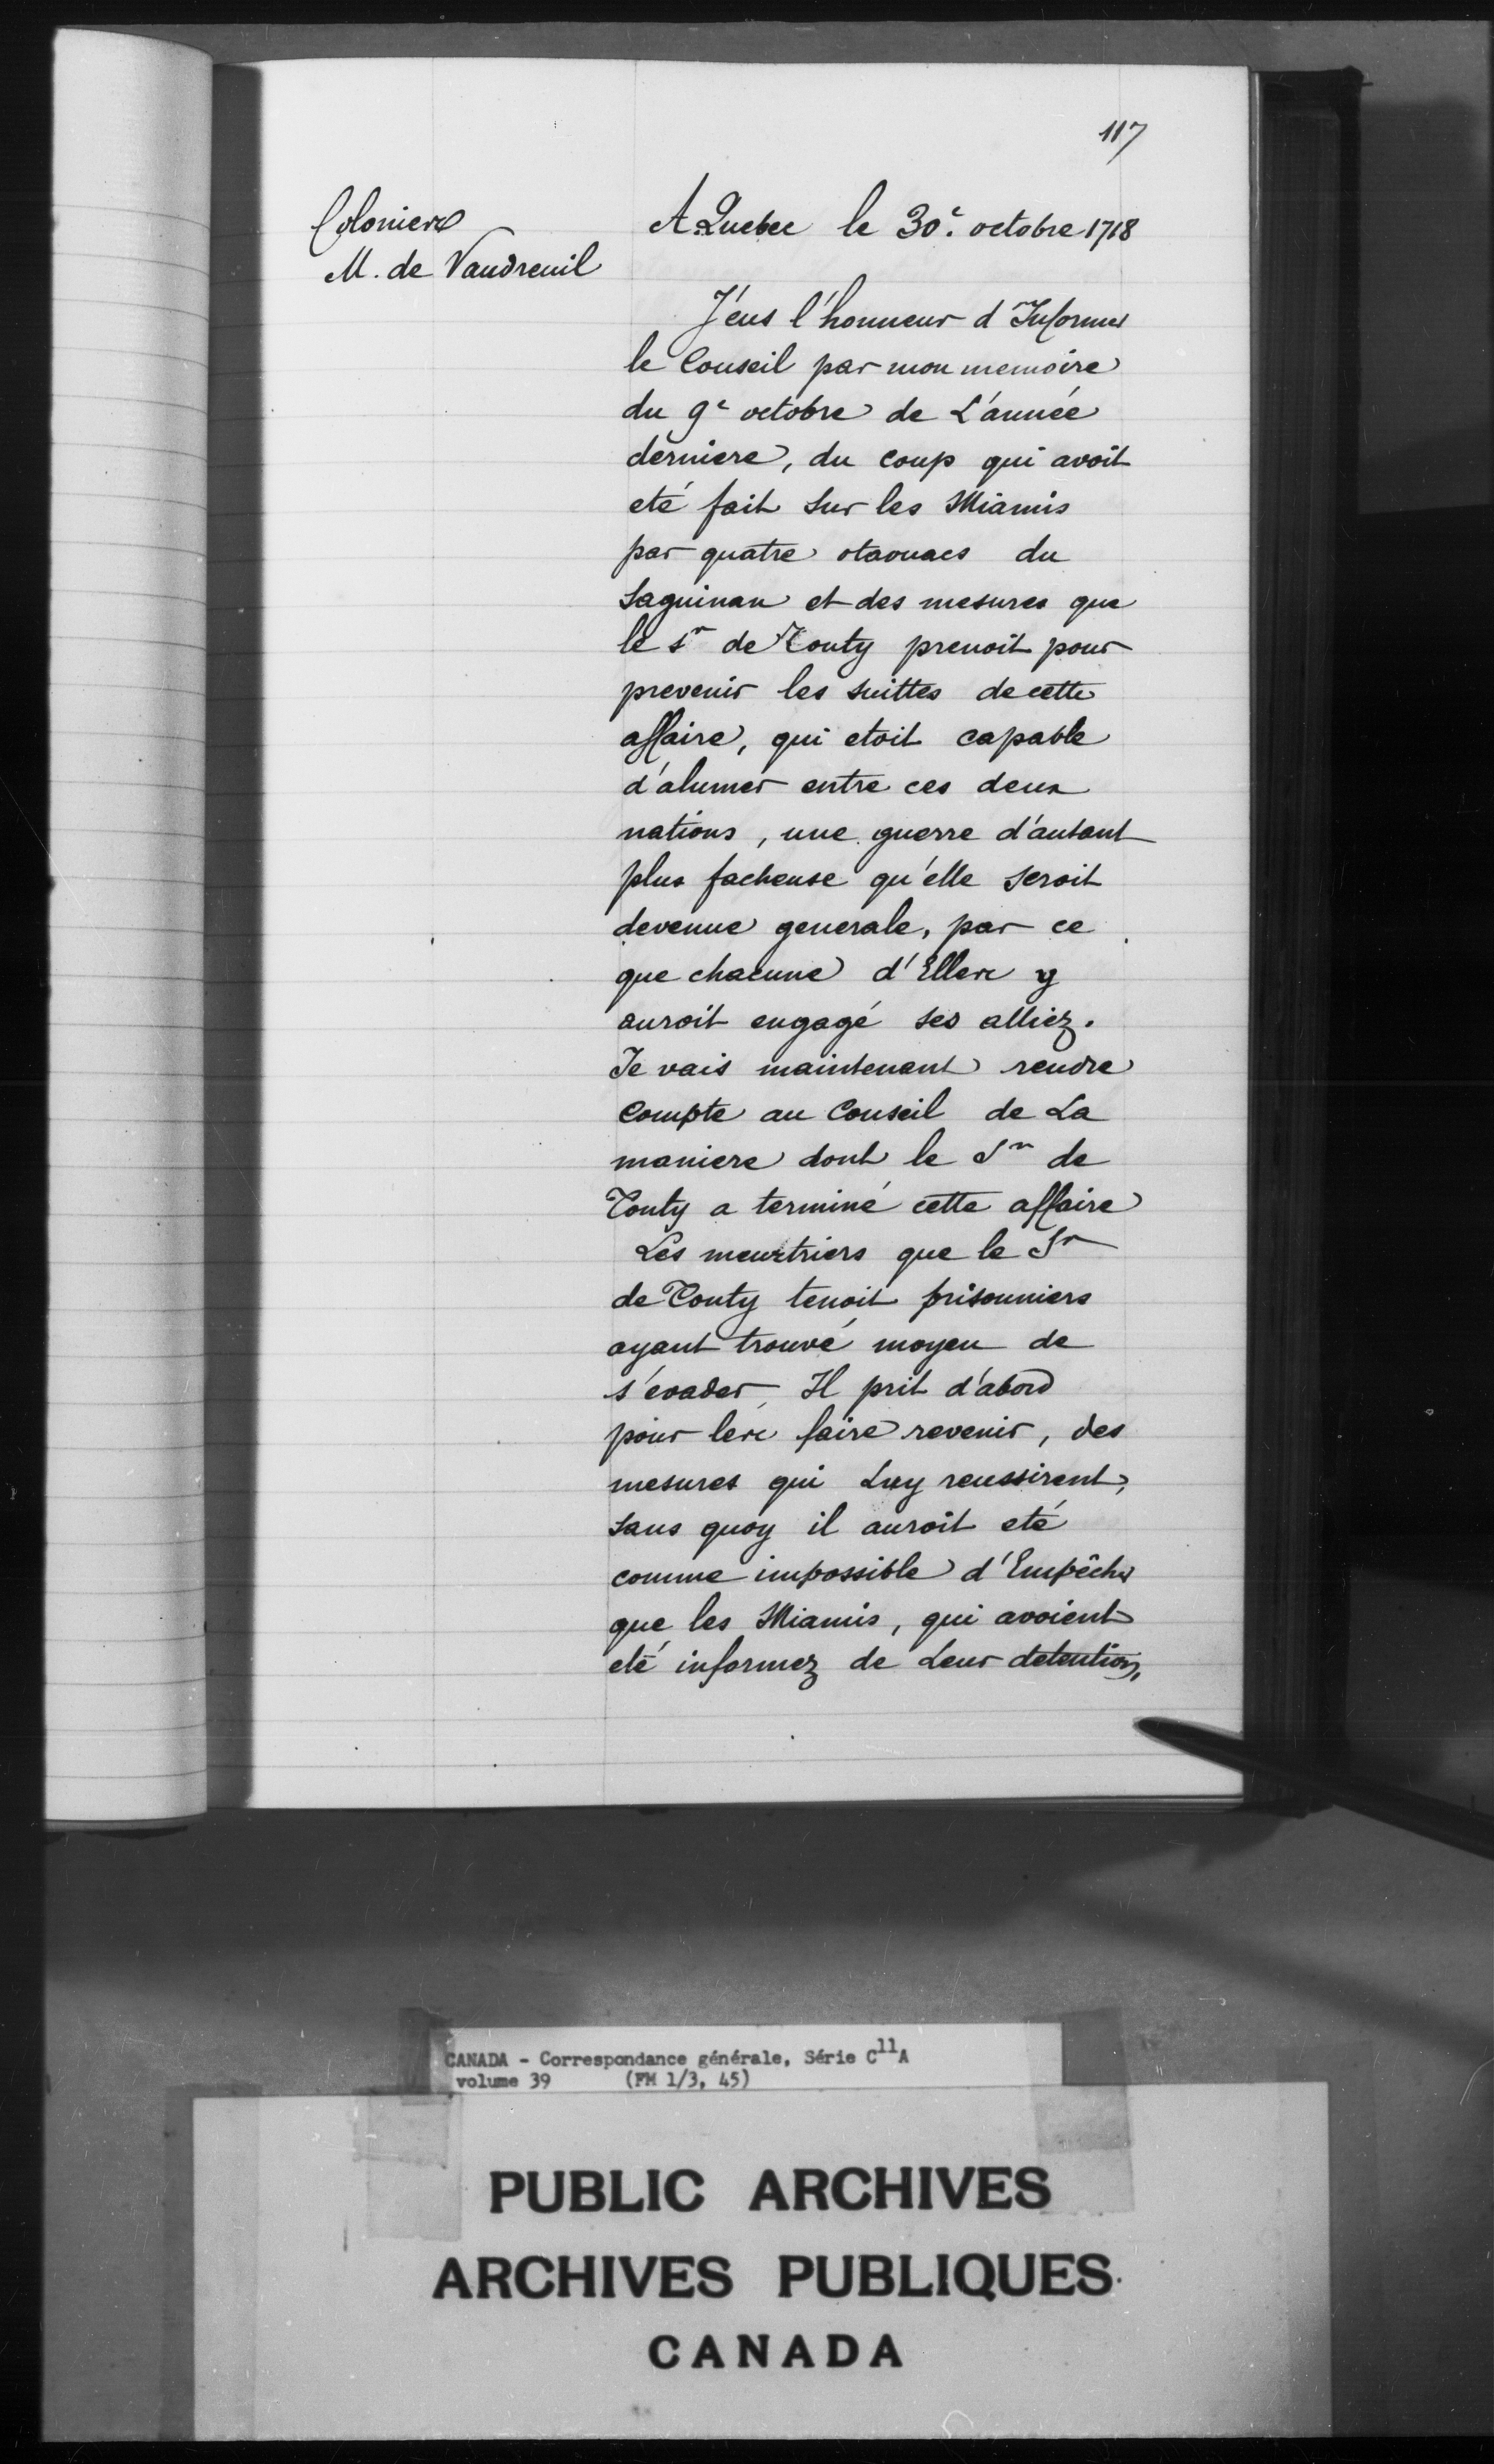 117
Colonies
M. de Vaudreuil
A Quebec le 30e. octobre 1718
J'eus l'honneur d'Informer
le Conseil par mon memoire
du 9e octobre de L'année
derniere, du coup qui avoit
eté fait sur les Miamis
par quatre otaouacs du
Saguinan et des mesures que
le sr de Tonty prenoit pour
prevenir les suittes de cette
affaire, qui etoit capable
d'alumer entre ces deux
nations, une guerre d'autant
plus facheuse qu'elle seroit
devenue generale, par ce
que chacune d'Elles y
auroit engagé ses alliez.
Je vais maintenant rendre
compte au Conseil de La
maniere dont le Sr de
Tonty a terminé cette affaire
Les meurtriers que le Sr
de Tonty tenoit prisonniers
ayant trouvé moyen de
s'évader, Il prit d'abord
pour les faire revenir, des
mesures qui Luy reussirent,
sans quoy il auroit eté
comme impossible d'Empêcher
que les Miamis, qui avoient
eté informez de Leur detention,
CANADA - Correspondance générale, Série C11A
volume 39 (FM 1/3, 45)
PUBLIC ARCHIVES
ARCHIVES PUBLIQUES
CANADA